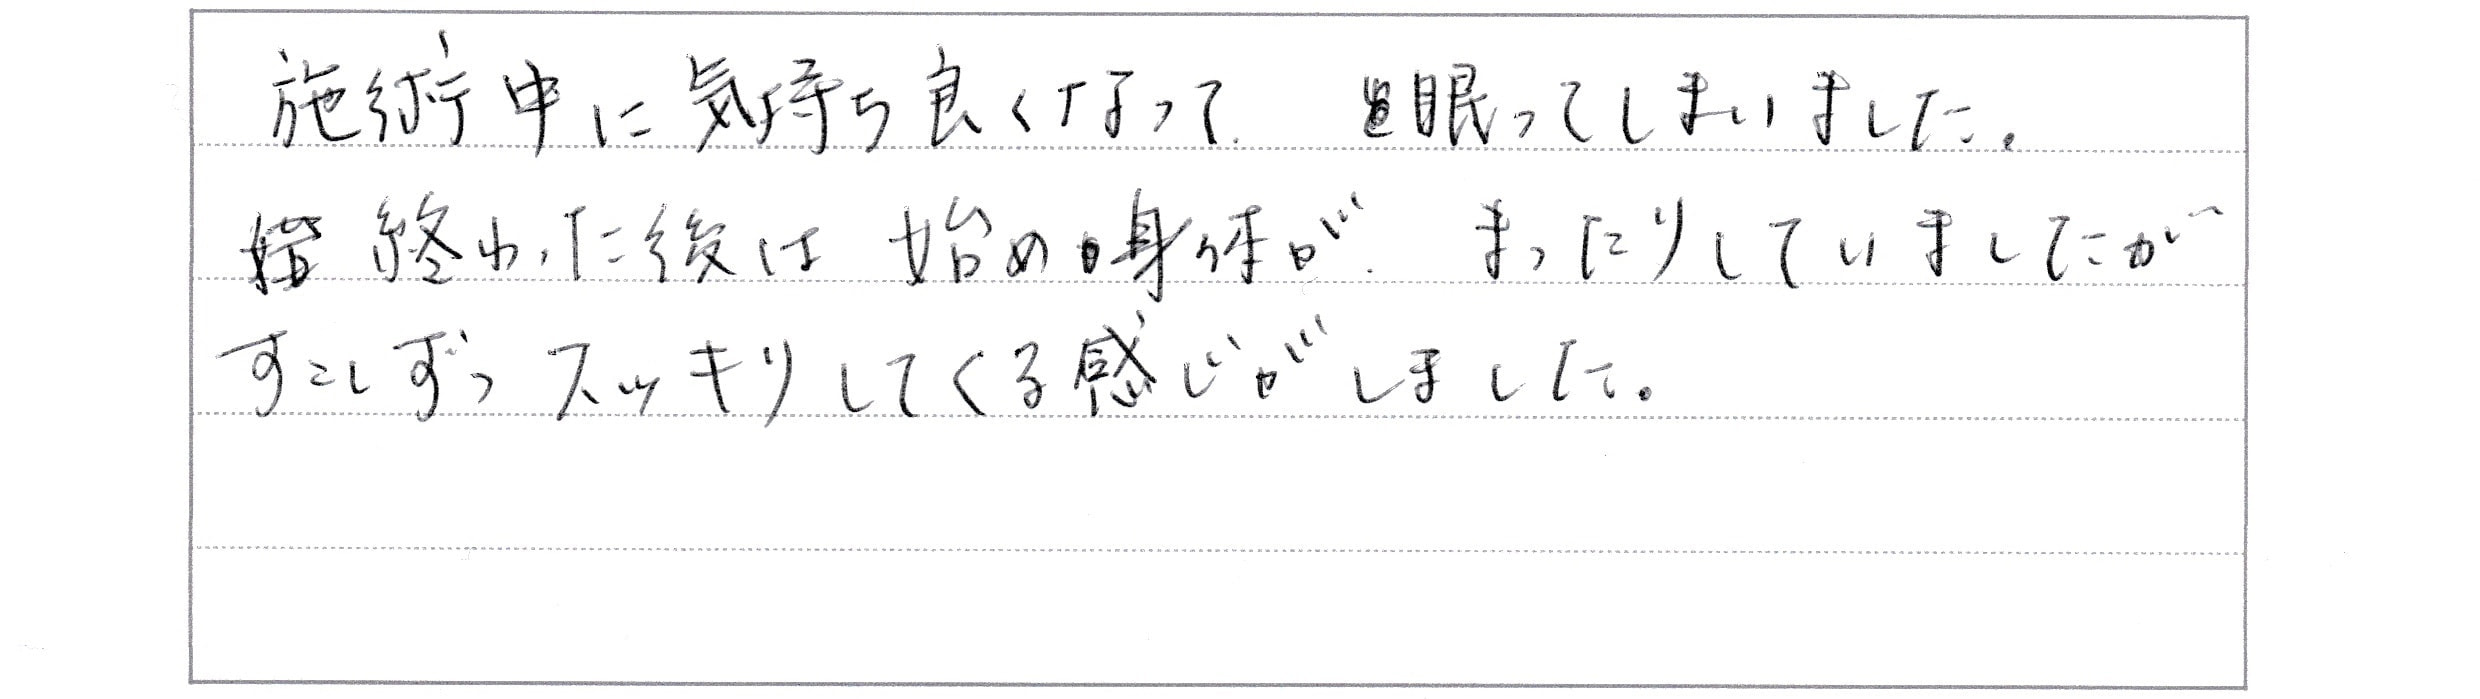 施術中に気持ち良くなって 眠ってしまいました。
終わった後は 始め身体が まったりしていましたが
すこしずつ スッキリしてくる感じがしました。